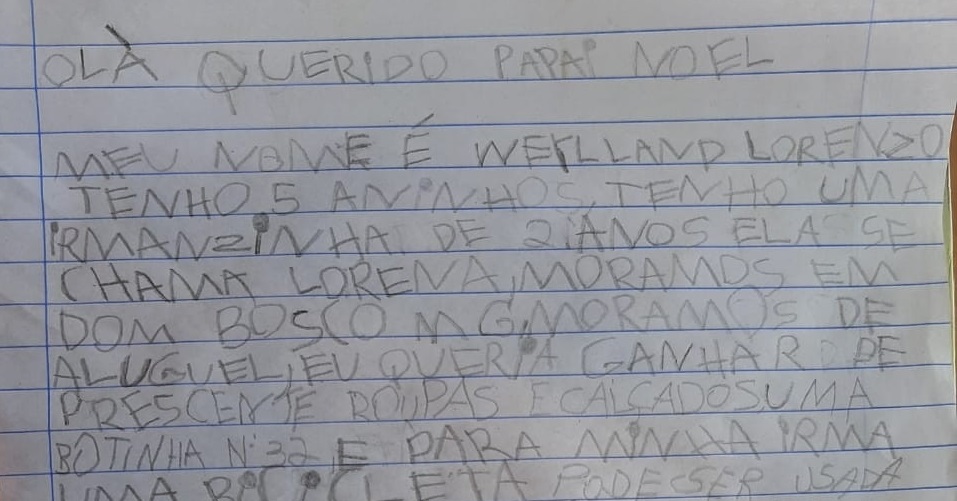 OLÀ QUERIDO PAPAI NOEL
MEU NOME É WERLLAND LORENZO
TENHO 5 ANINHOS, TENHO UMA
IRMANZINHA DE 2 ANOS ELA SE
CHAMA LORENA, MORAMOS EM
DOM BOSCO MG, MORAMOS DE
ALUGUEL, EU QUERIA GANHAR DE
PRESCENTE ROUPAS E CALÇADOS UMA
BOTINHA Nº 32 E PARA MINHA IRMA
UMA BICICLETA PODE SER USADA